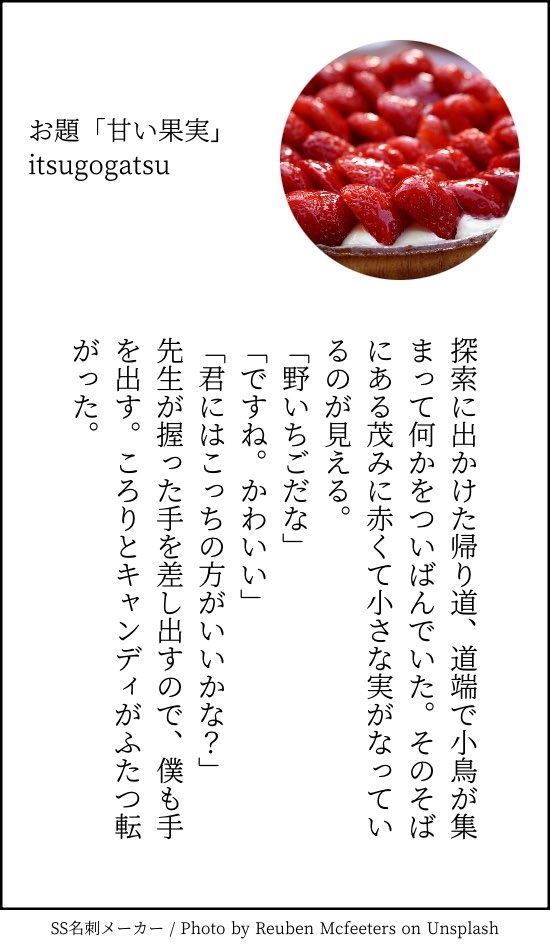 お題「甘い果実」
itsugogatsu
探索に出かけた帰り道、道端で小鳥が集
まって何かをついばんでいた。そのそば
にある茂みに赤くて小さな実がなってい
るのが見える。
「野いちごだな」
「ですね。かわいい」
「君にはこっちの方がいいかな？」
先生が握った手を差し出すので、僕も手
を出す。ころりとキャンディがふたつ転
がった。
SS名刺メーカー / Photo by Reuben Mcfeeters on Unsplash